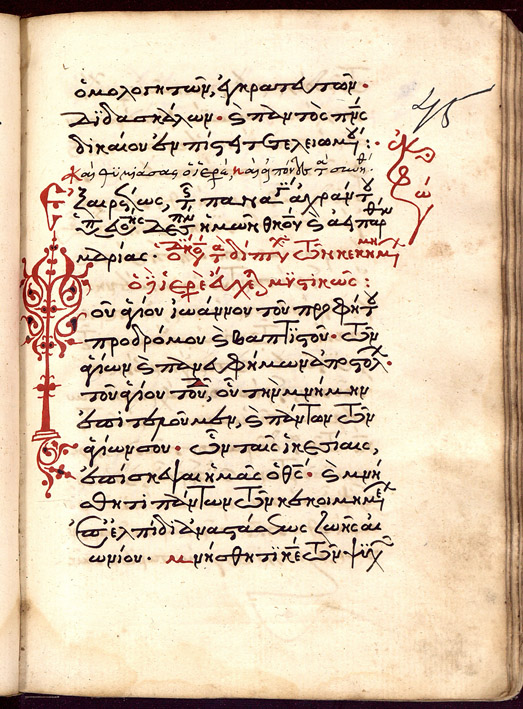 ὁμολογητῶν, ἐγκρατευτῶν·
διδασκάλων· καὶ παντὸς πνς
δικαίου ἐν πίστει τετελειωμένου:·
45
Καὶ θυμιάσας ὁ ἱερεὺς
Ἐξαιρέτως, τῆς παναγίας ἀχράντου
δεσποίνης ἡμῶν θκου καὶ ἀειπαρθένου
μαρίας· τὰ δίπτυχα τῶν κεκοιμημένων
ὁ ἱερεὺς ἐπεύχεται μυστικῶς:
Τοῦ ἁγίου ἰωάννου τοῦ προφήτου
προδρόμου καὶ βαπτιστοῦ· τῶν
ἁγίων καὶ πανευφήμων ἀποστόλων·
τοῦ ἁγίου τοῦδε, οὗ τὴν μνήμην
ἐπιτελοῦμεν, καὶ πάντων τῶν
ἁγίων σου· ὧν ταῖς ἱκεσίαις,
ἐπίσκεψαι ἡμᾶς ὁ θς· καὶ μνή
σθητι πάντων τῶν κεκοιμημένων
ἐπ' ἐλπίδι ἀναστάσεως ζωῆς αἰ
ωνίου· μνήσθητι κε τῶν ψυχῶν